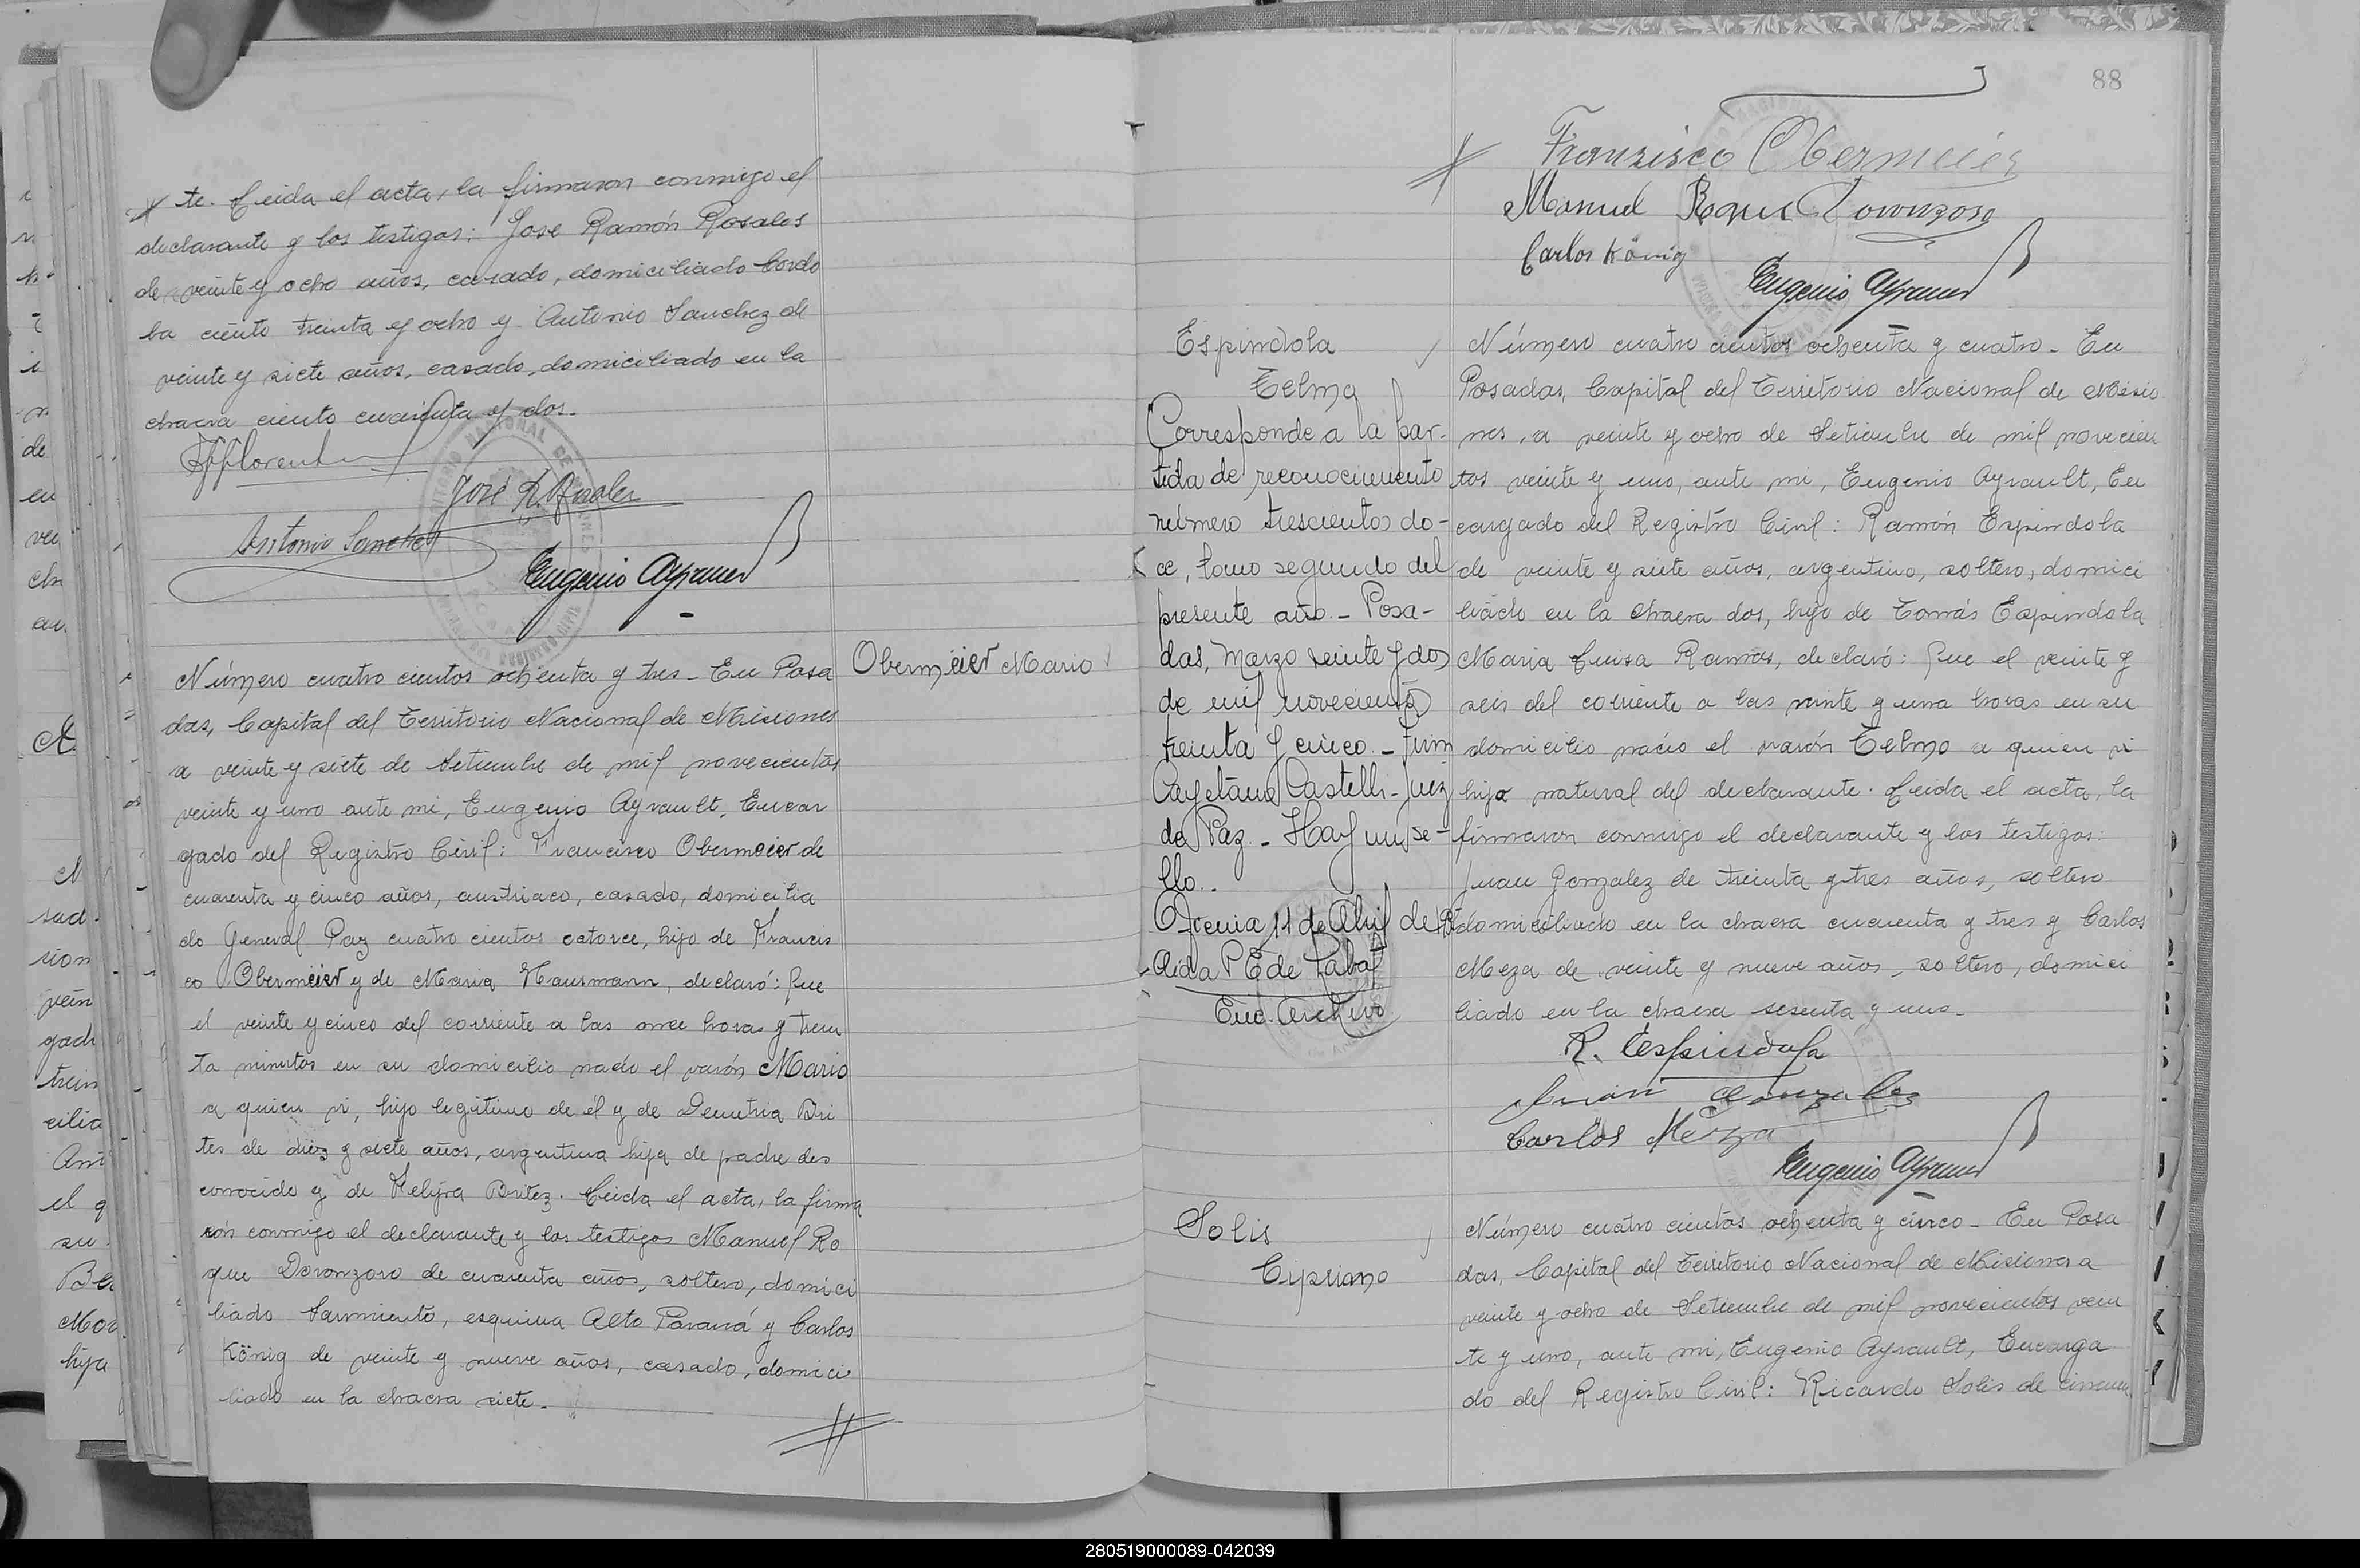 te. Leida el acta, la firmaron conmigo el
declarante y los testigos: Jose Ramón Rosales
de veinte y ocho años, casado, domiciliado Cordo
ba ciento treinta y ocho y Antonio Sanchez de
veinte y siete años, casado, domiciliado en la
chacra ciento cuarenta y dos.
José R. Rosales
Antonio Sanchez
Eugenio Ayrault
Obermeier Mario
Número cuatro cientos ochenta y tres - En Posa
das, Capital del Territorio Nacional de Misiones
a veinte y siete de Setiembre de mil novecientos
veinte y uno ante mi, Eugenio Ayrault, Encar
gado del Registro Civil: Francisco Obermeier de
cuarenta y cinco años, austriaco, casado, domicilia
do General Paz cuatro cientos catorce, hijo de Francis
co Obermeier y de Maria Hausmann, declaró: Que
el veinte y cinco del corriente a las once horas y trein
ta minutos en su domicilio nació el varón Mario
a quien vi, hijo legitimo de él y de Demetria Bri
tes de diez y siete años, argentina hija de padre des
conocido y de Britez. Leida el acta, la firma
rón conmigo el declarante y los testigos Manuel Ro
que Doronzoro de cuarenta años, soltero, domici
liado Sarmiento, esquina Alto Paraná y Carlos
König de veinte y nueve años, casado, domici
liado en la chacra siete.
88
Franzisco Obermeier
Manuel Roque Doronzoro
Carlos König
Eugenio Ayrault
Espindola
Telmo
Corresponde a la par-
tida de reconocimiento
número trescientos do-
ce, tomo segundo del
presente año. - Posa-
das, Marzo veinte y dos
de mil novecientos
treinta y cinco. -
Cayetano Castelli - Juez
de Paz. - Hay un se-
llo..
11 de Abril de
Aida P E de
Enc. Archivo
Número cuatro cientos ochenta y cuatro - En
Posadas, Capital del Territorio Nacional de Misio
nes, a veinte y ocho de Setiembre de mil novecien
tos veinte y uno, ante mi, Eugenio Ayrault, En
cargado del Registro Civil: Ramón Espindola
de veinte y siete años, argentino, soltero, domici
liado en la chacra dos, hijo de Tomás Espindola
Maria Luisa Ramos, declaró: Que el veinte y
seis del corriente a las veinte y una horas en su
domicilio nacio el varón Telmo a quien vi
hijo natural del declarante. Leida el acta, la
firmaron conmigo el declarante y los testigos:
Juan Gonzalez de treinta y tres años, soltero
domiciliado en la chacra cincuenta y tres y Carlos
Meza de veinte y nueve años, soltero, domici
liado en la chacra sesenta y uno.
R. Espindola
Juan Gonzalez
Carlos Meza
Eugenio Ayrault
Solis
Cipriano
Número cuatro cientos ochenta y cinco - En Posa
das, Capital del Territorio Nacional de Misiones a
veinte y ocho de Setiembre de mil novecientos vein
te y uno, ante mi, Eugenio Ayrault, Encarga
do del Registro Civil: Ricardo Solis de cincuen
280519000089-042039